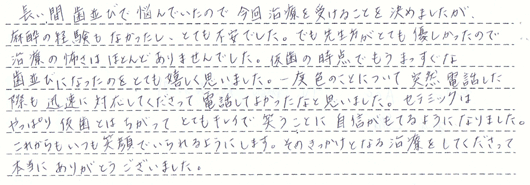 長い間 歯並びで悩んでいたので 今回治療を受けることを決めましたが、
麻酔の経験もなかったし、とても不安でした。でも先生方がとても優しかったので
治療の怖さはほとんどありませんでした。仮歯の時点でもうまっすぐな
歯並びになったのをとても嬉しく思いました。一度色のことについて突然電話した
際も迅速に対応してくださって電話してよかったなと思いました。セラミックは
やっぱり仮歯とはちがって とてもキレイで 笑うことに自信がもてるようになりました。
これからもいつも笑顔でいられるようにします。そのきっかけとなる治療をしてくださって
本当にありがとうございました。